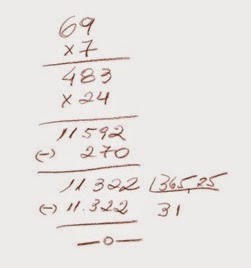 69
x 7
483
x 24
11592
(-) 270
11322 365,25
(-) 11.322 31
—0—